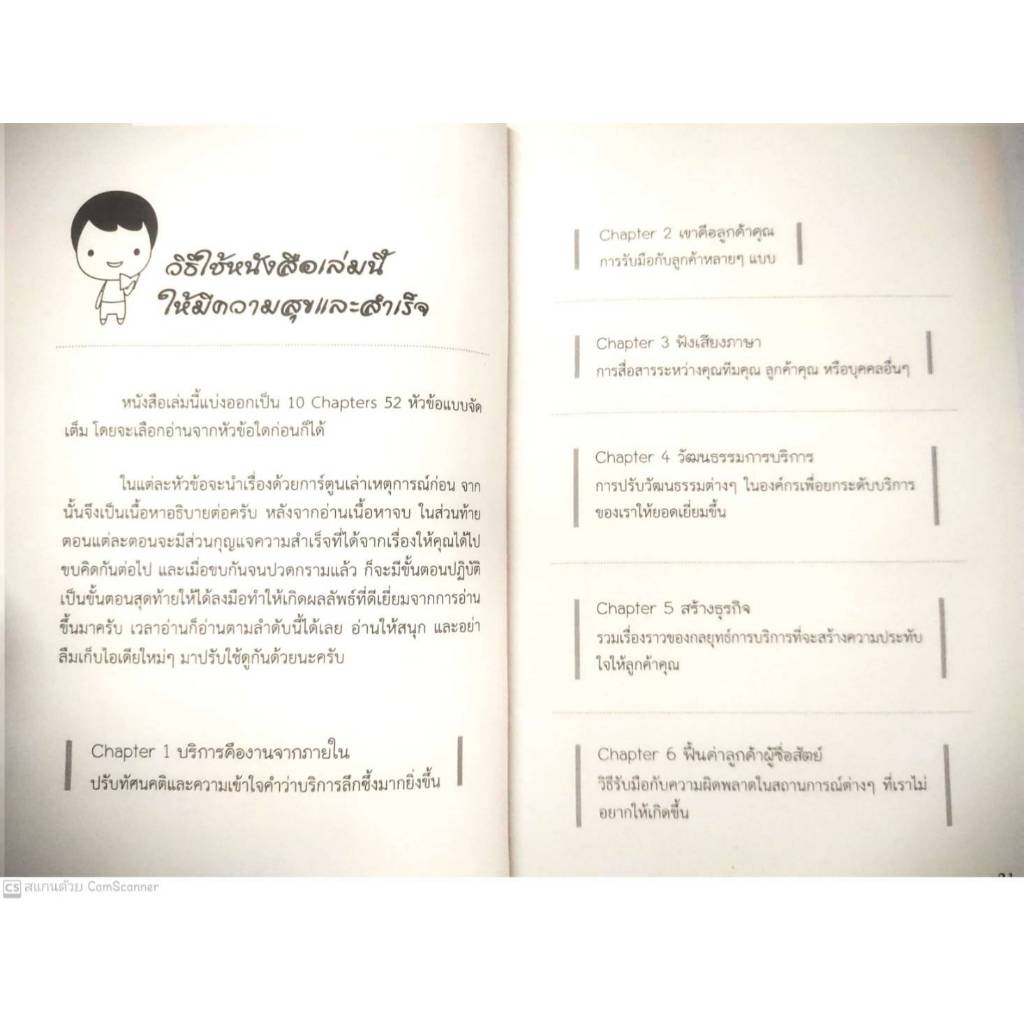 วิธีใช้หนังสือเล่มนี้
ให้มีความสุขและสำเร็จ
หนังสือเล่มนี้แบ่งออกเป็น 10 Chapters 52 หัวข้อแบบจัด
เต็ม โดยจะเลือกอ่านจากหัวข้อใดก่อนก็ได้
ในแต่ละหัวข้อจะนำเรื่องด้วยการ์ตูนเล่าเหตุการณ์ก่อน จาก
นั้นจึงเป็นเนื้อหาอธิบายต่อครับ หลังจากอ่านเนื้อหาจบ ในส่วนท้าย
ตอนแต่ละตอนจะมีส่วนกุญแจความสำเร็จที่ได้จากเรื่องให้คุณได้ไป
ขบคิดกันต่อไป และเมื่อขบกันจนปวดกรามแล้ว ก็จะมีขั้นตอนปฏิบัติ
เป็นขั้นตอนสุดท้ายให้ได้ลงมือทำให้เกิดผลลัพธ์ที่ดีเยี่ยมจากการอ่าน
ขึ้นมาครับ เวลาอ่านก็อ่านตามลำดับนี้ได้เลย อ่านให้สนุก และอย่า
ลืมเก็บไอเดียใหม่ๆ มาปรับใช้ดูกันด้วยนะครับ
Chapter 1 บริการคืองานจากภายใน
ปรับทัศนคติและความเข้าใจคำว่าบริการลึกซึ้งมากยิ่งขึ้น
Chapter 2 เขาคือลูกค้าคุณ
การรับมือกับลูกค้าหลายๆ แบบ
Chapter 3 ฟังเสียงภาษา
การสื่อสารระหว่างคุณทีมคุณ ลูกค้าคุณ หรือบุคคลอื่นๆ
Chapter 4 วัฒนธรรมการบริการ
การปรับวัฒนธรรมต่างๆ ในองค์กรเพื่อยกระดับบริการ
ของเราให้ยอดเยี่ยมขึ้น
Chapter 5 สร้างธุรกิจ
รวมเรื่องราวของกลยุทธ์การบริการที่จะสร้างความประทับ
ใจให้ลูกค้าคุณ
Chapter 6 ฟื้นค่าลูกค้าผู้ซื่อสัตย์
วิธีรับมือกับความผิดพลาดในสถานการณ์ต่างๆ ที่เราไม่
อยากให้เกิดขึ้น
CS สแกนด้วย CamScanner